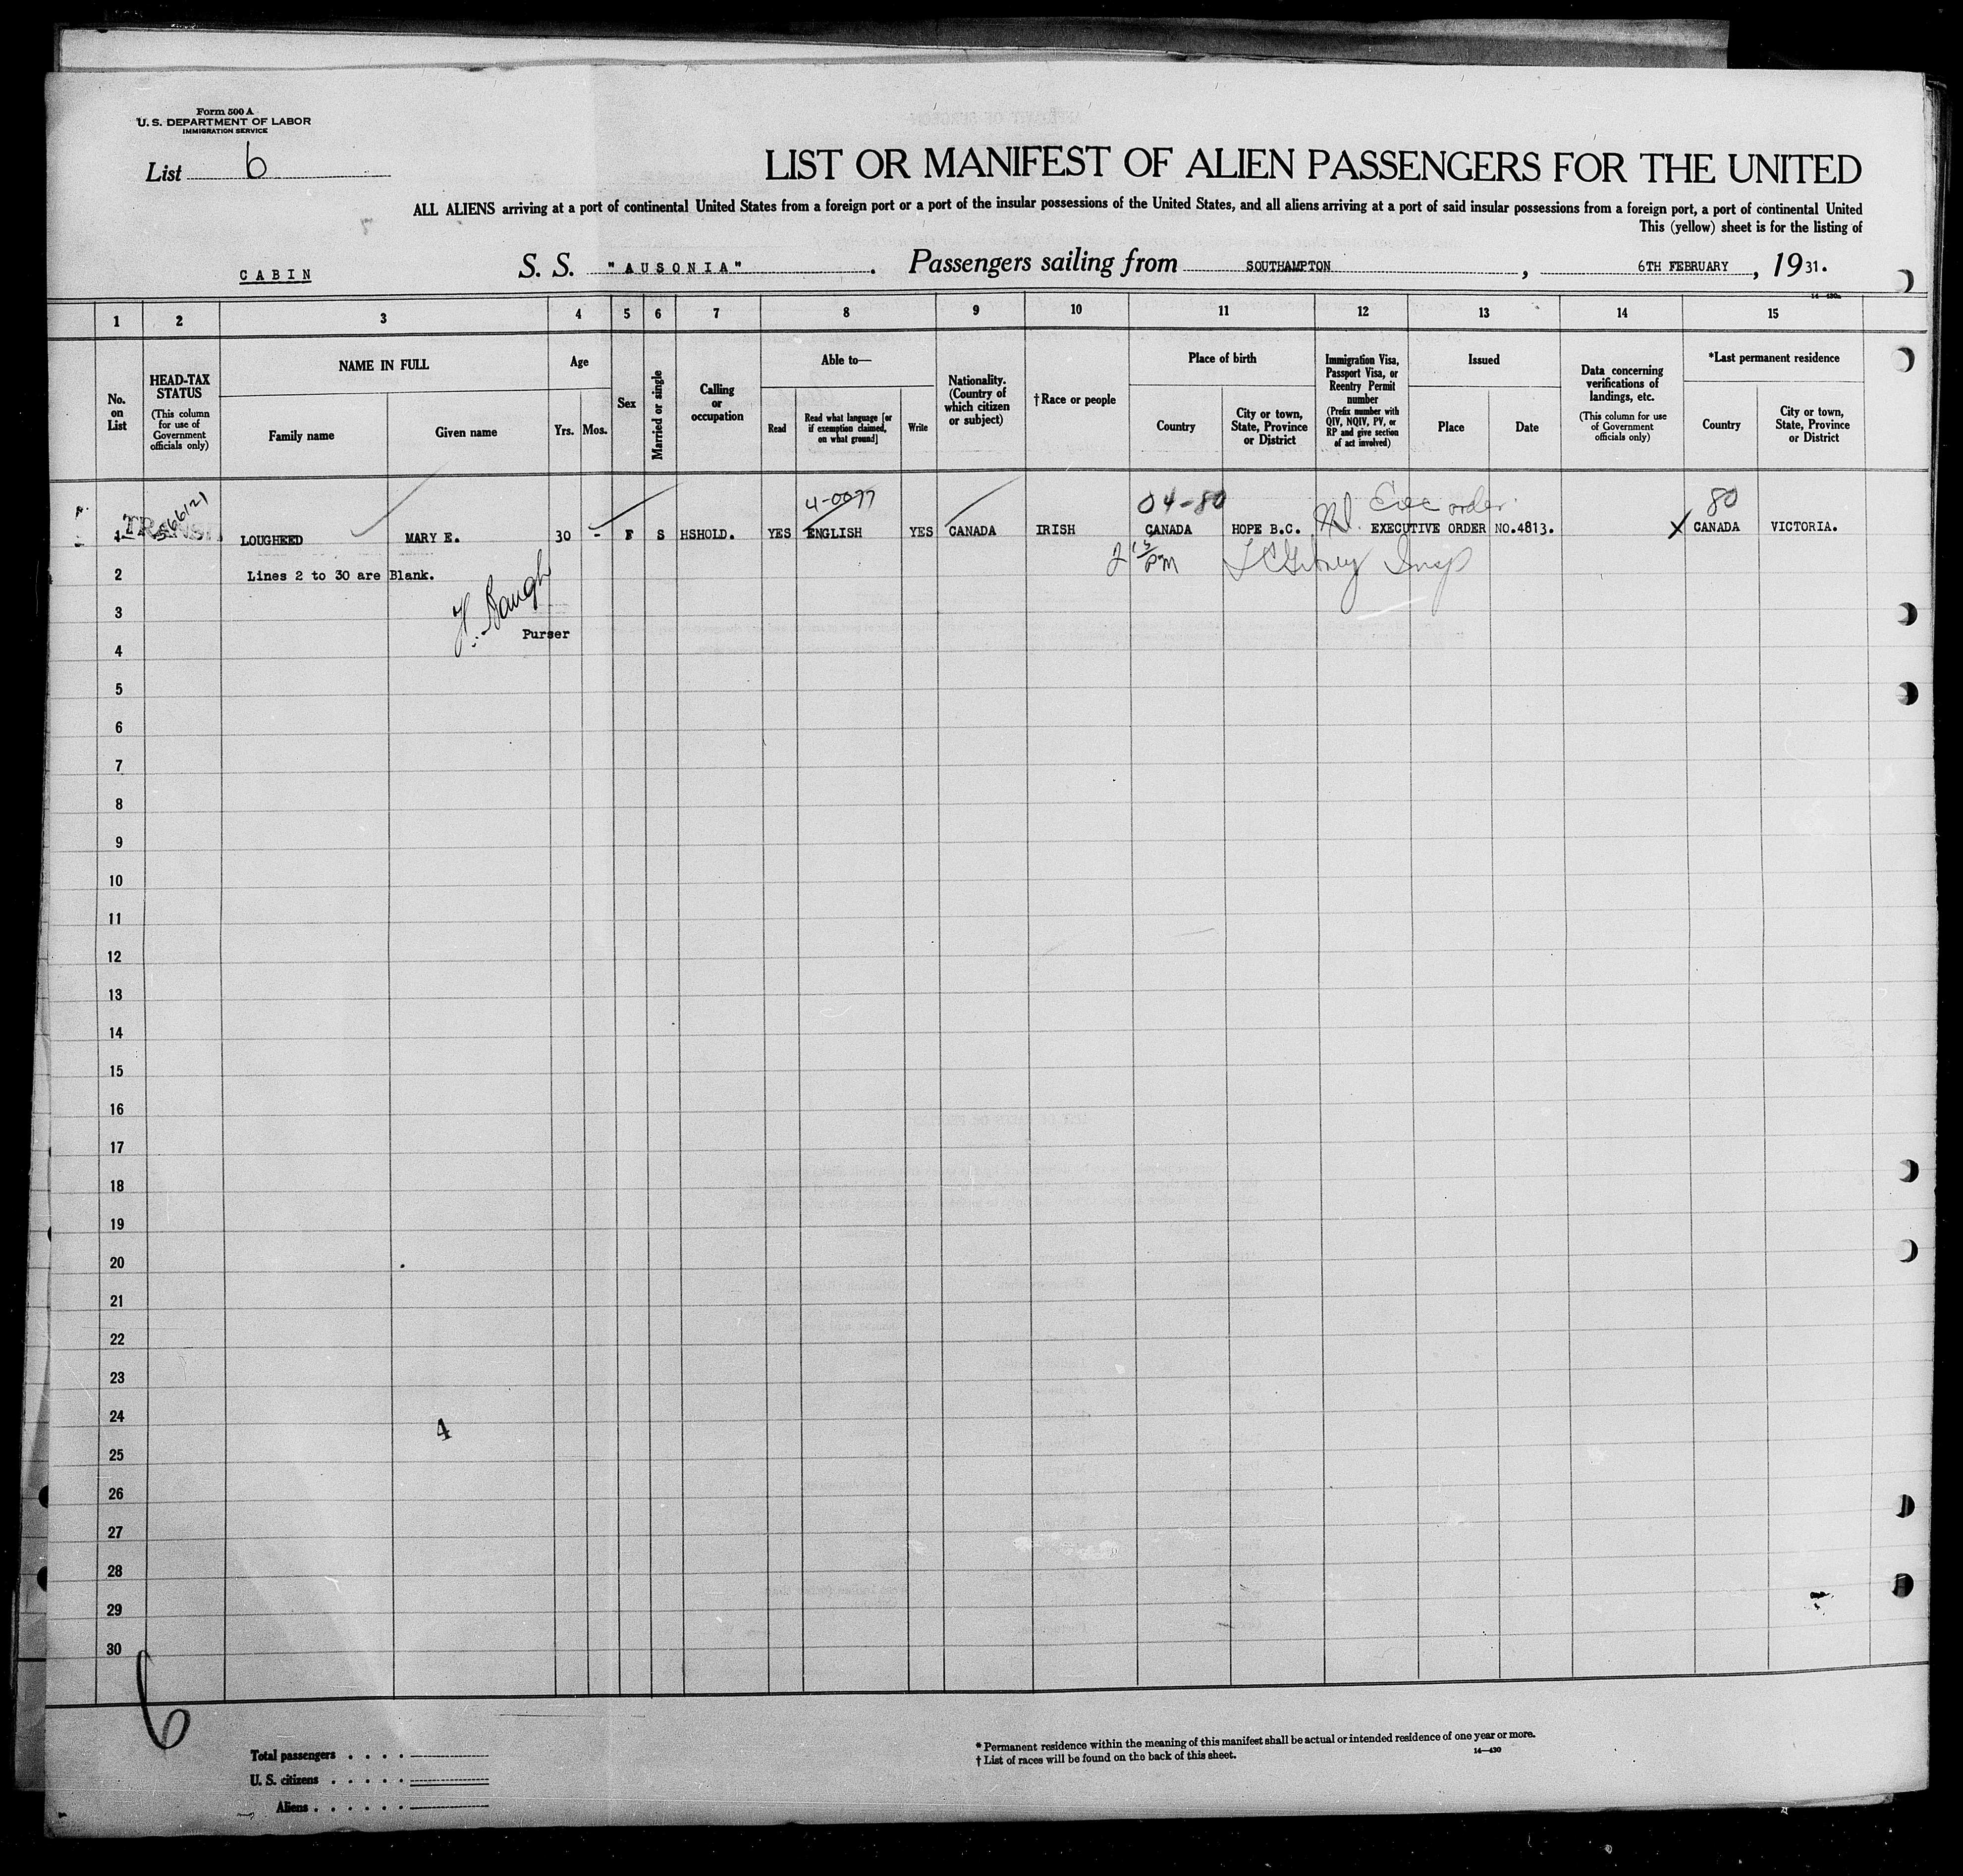 Form 500 A
U. S. DEPARTMENT OF LABOR
IMMIGRATION SERVICE
List 6
LIST OR MANIFEST OF ALIEN PASSENGERS FOR THE UNITED
ALL ALIENS arriving at a port of continental United States from a foreign port or a port of the insular possessions of the United States, and all aliens arriving at a port of said insular possessions from a foreign port, a port of continental United
This (yellow) sheet is for the listing of
CABIN S. S. "AUSONIA". Passengers sailing from SOUTHAMPTON, 6TH FEBRUARY, 1931.
1 2 3 4 5 6 7 8 9 10 11 12 13 14 15
No. on List
HEAD-TAX STATUS
(This column for use of Government officials only)
NAME IN FULL
Family name Given name
Age
Yrs. Mos.
Sex
Married or single
Calling or occupation
Able to—
Read
Read what language [or if exemption claimed, on what ground]
Write
Nationality. (Country of which citizen or subject)
†Race or people
Place of birth
Country
City or town, State, Province or District
Immigration Visa, Passport Visa, or Reentry Permit number
(Prefix number with QIV, NQIV, PV, or RP and give section of act involved)
Issued
Place Date
Data concerning verifications of landings, etc.
(This column for use of Government officials only)
*Last permanent residence
Country
City or town, State, Province or District
4-0077 04-80 Exec order 80
1 TRANSIT LOUGHEED MARY E. 30 - F S HSHOLD. YES ENGLISH YES CANADA IRISH CANADA HOPE B.C. EXECUTIVE ORDER NO.4813. X CANADA VICTORIA.
2 15 PM Insp
2 Lines 2 to 30 are Blank.
H. Baugh
3
Purser
4
5
6
7
8
9
10
11
12
13
14
15
16
17
18
19
20
21
22
23
24
4
25
26
27
28
29
30
6
Total passengers . . . .
U. S. citizens . . . . .
Aliens . . . . . .
* Permanent residence within the meaning of this manifest shall be actual or intended residence of one year or more.
† List of races will be found on the back of this sheet.
14—430